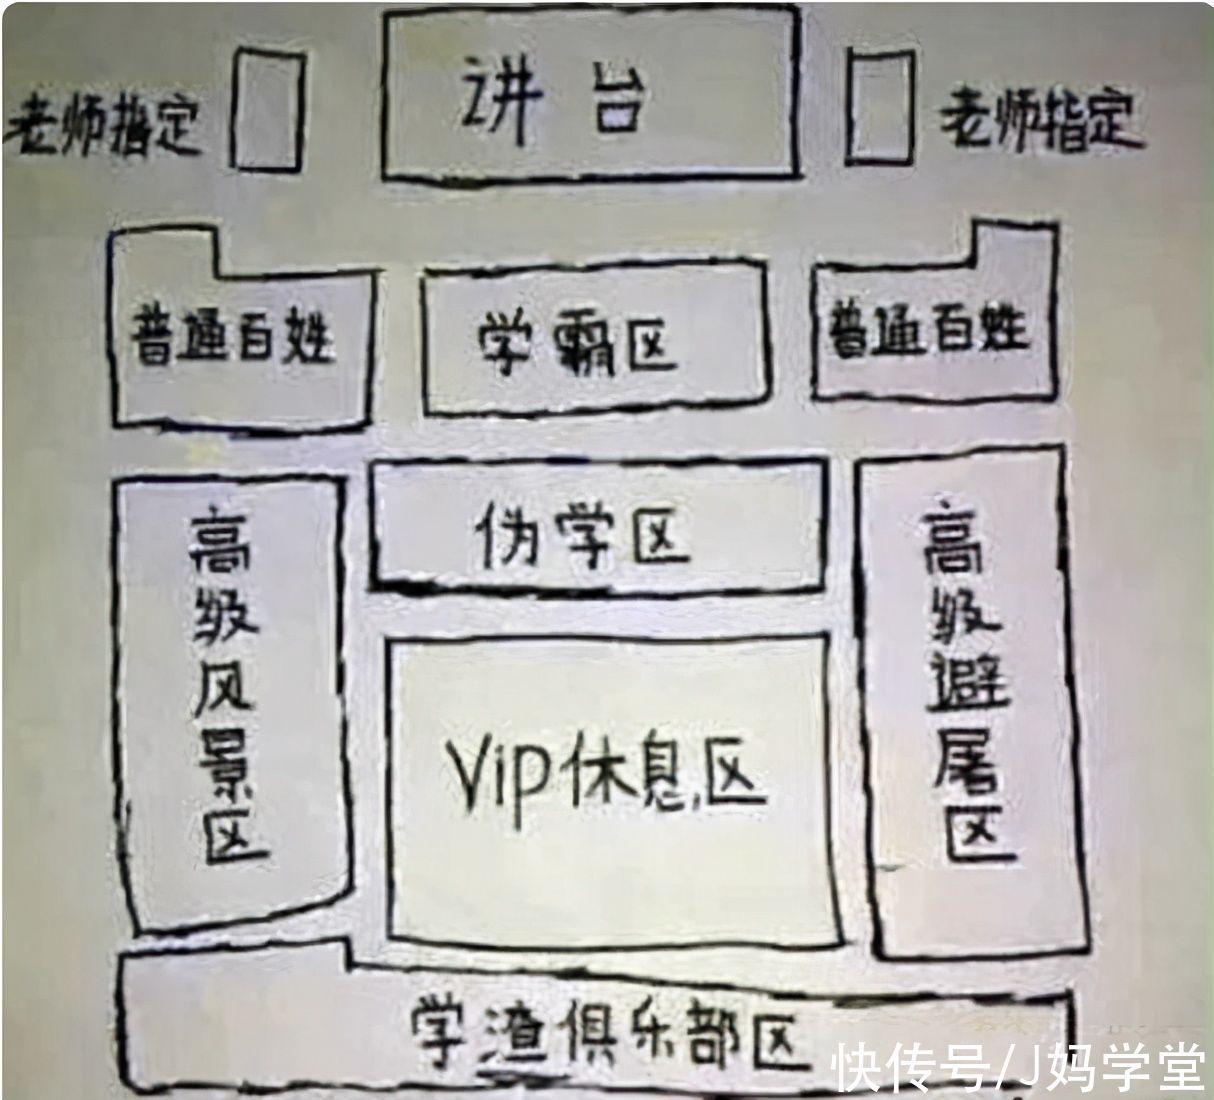 讲台
老师指定
老师指定
普通百姓
学霸区
普通百姓
伪学区
高级风景区
Vip休息区
高级避暑区
学渣俱乐部区
快传号/J妈学堂